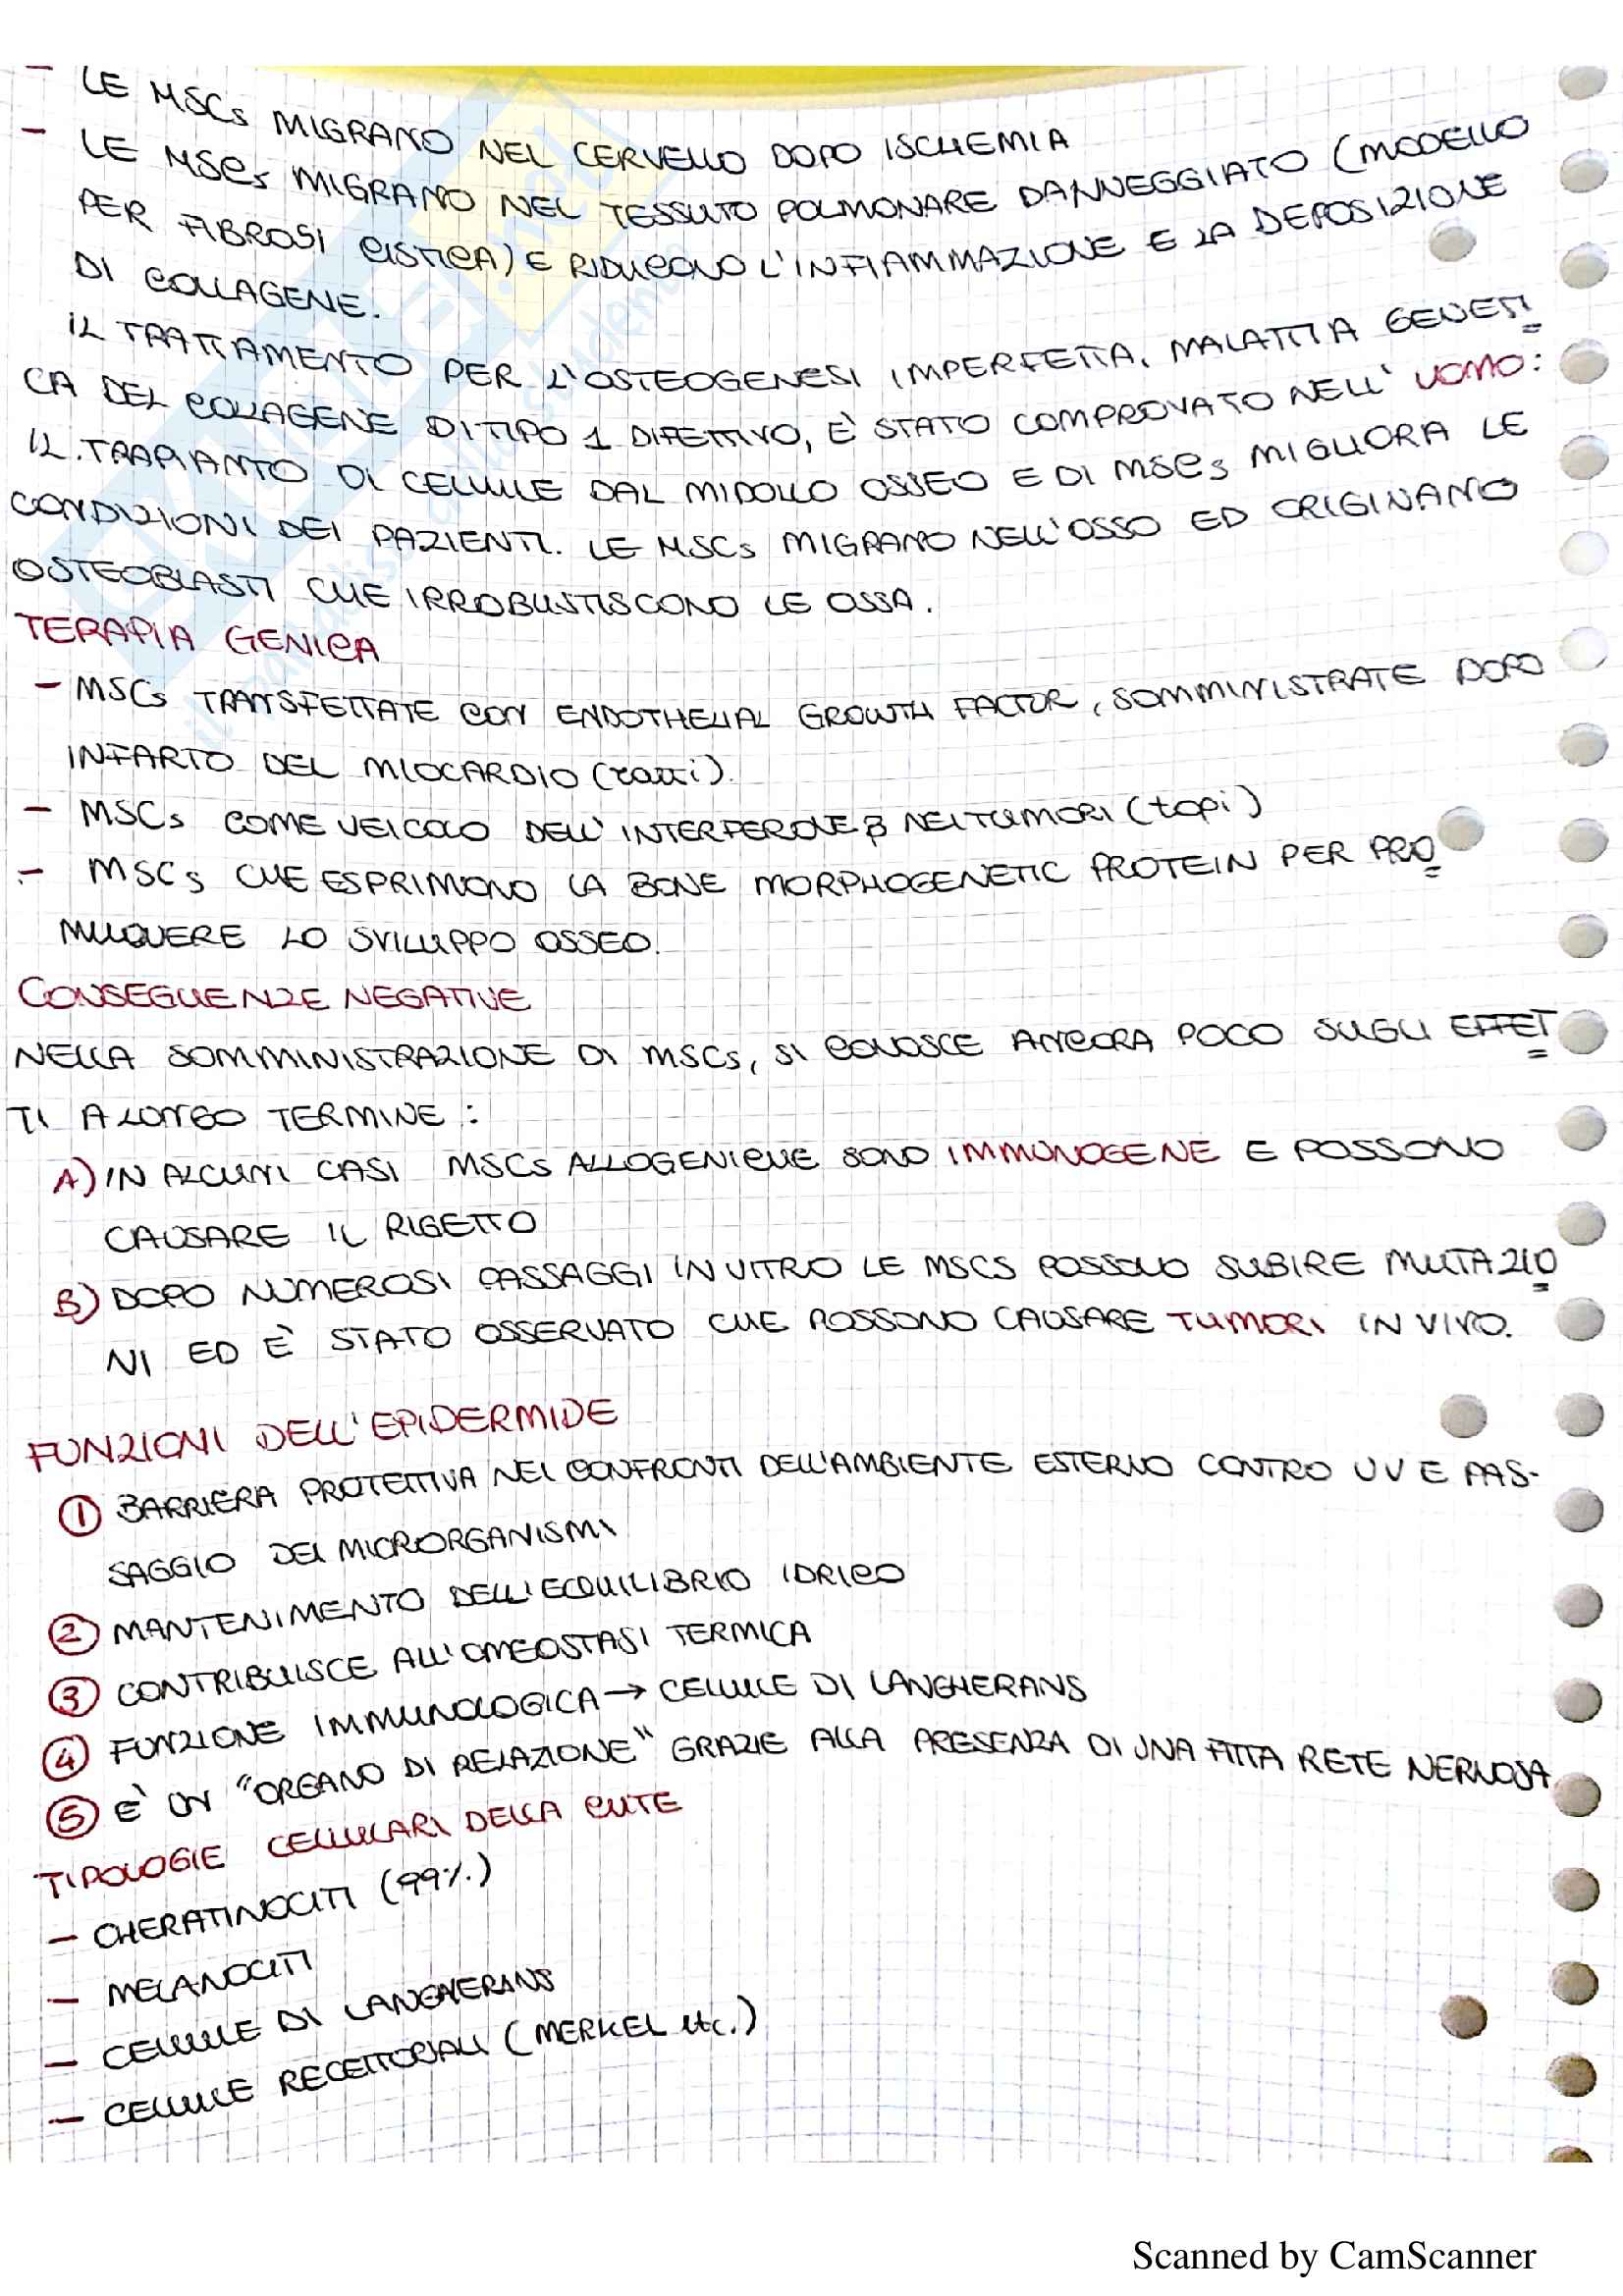 - LE MSCs MIGRANO NEL CERVELLO DOPO ISCHEMIA
- LE MSCs MIGRANO NEL TESSUTO POLMONARE DANNEGGIATO (MODELLO
PER FIBROSI CISTICA) E RIDUCONO L'INFIAMMAZIONE E LA DEPOSIZIONE
DI COLLAGENE.
IL TRATTAMENTO PER L'OSTEOGENESI IMPERFETTA, MALATTIA GENETI
CA DEL COLLAGENE DI TIPO 1 DIFETTIVO, È STATO COMPROVATO NELL' UOMO:
IL TRAPIANTO DI CELLULE DAL MIDOLLO OSSEO E DI MSCs MIGLIORA LE
CONDIZIONI DEI PAZIENTI. LE MSCs MIGRANO NELL'OSSO ED ORIGINANO
OSTEOBLASTI CHE IRROBUSTISCONO LE OSSA.
TERAPIA GENICA
- MSCs TRANSFETTATE CON ENDOTHELIAL GROWTH FACTOR, SOMMINISTRATE DOPO
INFARTO DEL MIOCARDIO (ratti).
- MSCs COME VEICOLO DELL' INTERFERONE β NEI TUMORI (topi)
- MSCs CHE ESPRIMONO LA BONE MORPHOGENETIC PROTEIN PER PRO
MUOVERE LO SVILUPPO OSSEO.
CONSEGUENZE NEGATIVE
NELLA SOMMINISTRAZIONE DI MSCs, SI CONOSCE ANCORA POCO SUGLI EFFET
TI A LUNGO TERMINE:
A) IN ALCUNI CASI MSCs ALLOGENICHE SONO IMMUNOGENE E POSSONO
CAUSARE IL RIGETTO
B) DOPO NUMEROSI PASSAGGI IN VITRO LE MSCS POSSONO SUBIRE MUTAZIO
NI ED È STATO OSSERVATO CHE POSSONO CAUSARE TUMORI IN VIVO.
FUNZIONI DELL'EPIDERMIDE
① BARRIERA PROTETTIVA NEI CONFRONTI DELL'AMBIENTE ESTERNO CONTRO UV E PAS-
SAGGIO DEI MICRORGANISMI
② MANTENIMENTO DELL'EQUILIBRIO IDRICO
③ CONTRIBUISCE ALL'OMEOSTASI TERMICA
④ FUNZIONE IMMUNOLOGICA → CELLULE DI LANGHERANS
⑤ È UN "ORGANO DI RELAZIONE" GRAZIE ALLA PRESENZA DI UNA FITTA RETE NERVOSA
TIPOLOGIE CELLULARI DELLA CUTE
- CHERATINOCITI (99%)
- MELANOCITI
- CELLULE DI LANGHERANS
- CELLULE RECETTORIALI (MERKEL etc.)
Scanned by CamScanner